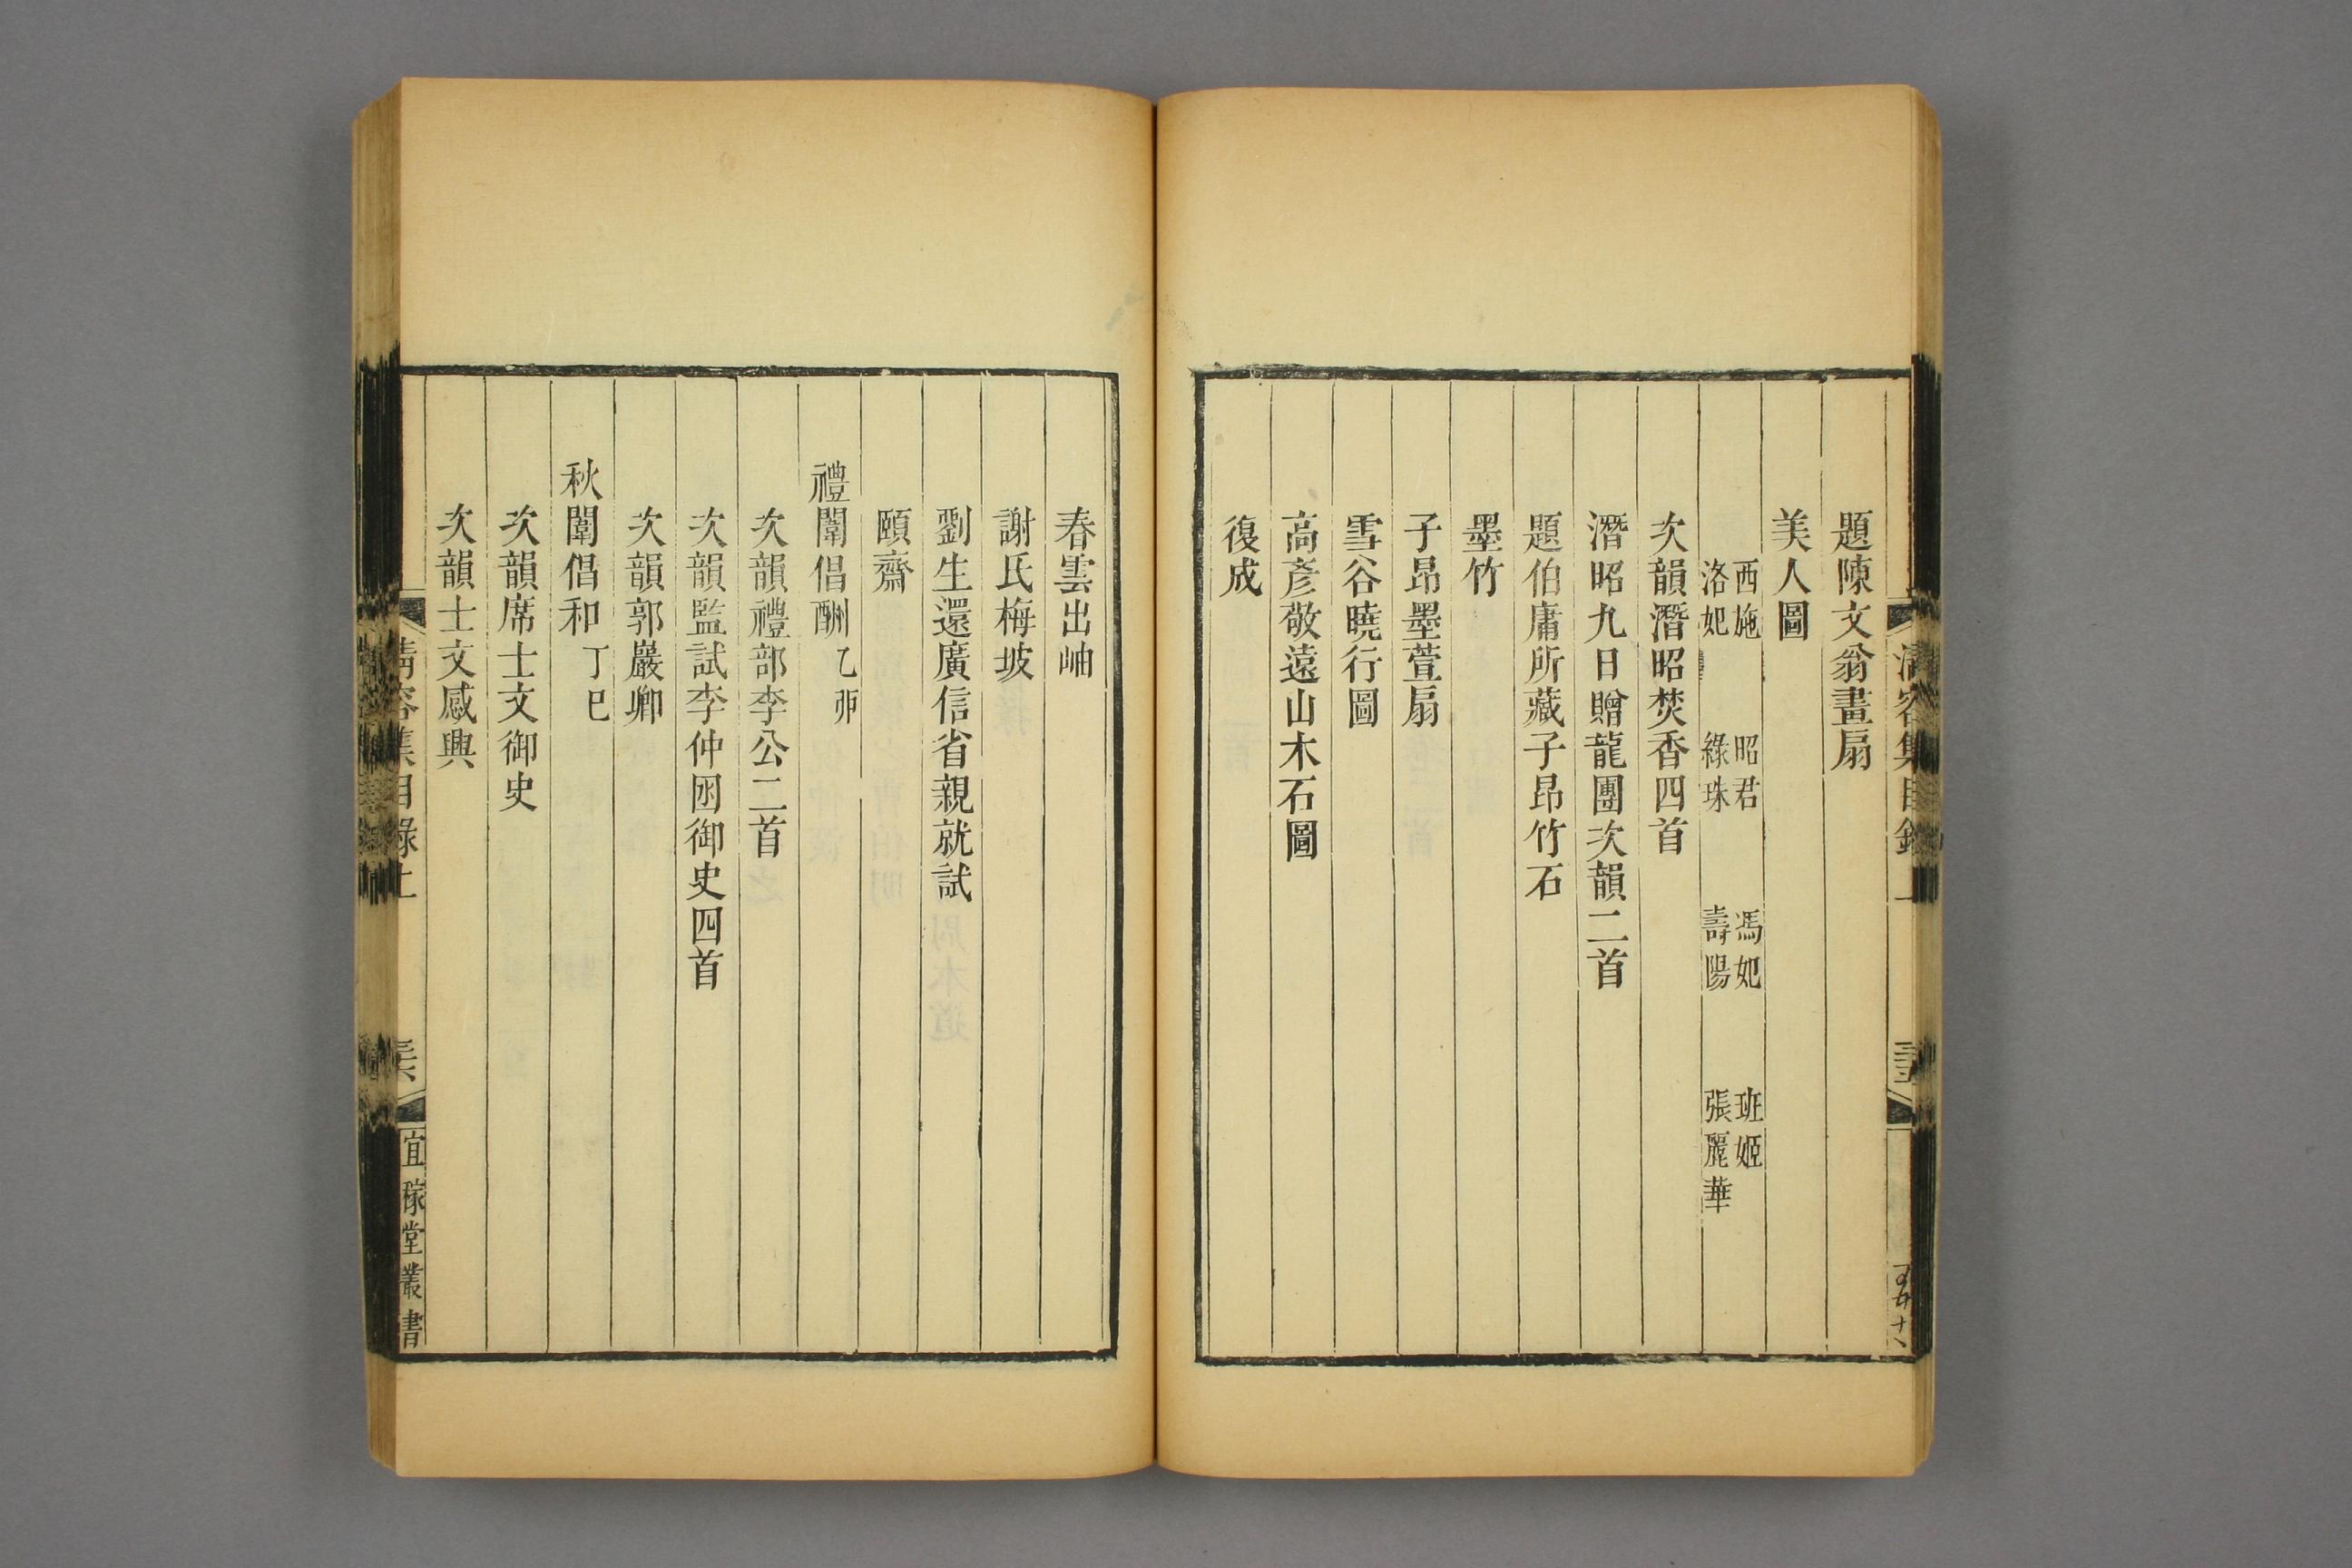 題陳文翁畫扇
美人圖
西施 昭君 馮妃 班姬
洛妃 綠珠 壽陽 張麗華
次韻潛昭焚香四首
潛昭九日贈龍團次韻二首
題伯庸所藏子昂竹石
墨竹
子昂墨萱扇
雪谷曉行圖
高彥敬遠山木石圖
復成
春雲出岫
謝氏梅坡
劉生還廣信省親就試
頤齋
禮闈倡酬 乙卯
次韻禮部李公二首
次韻監試李仲囦御史四首
次韻郭巖卿
秋闈倡和 丁巳
次韻席士文御史
次韻士文感興
清容集目錄上
宜稼堂叢書